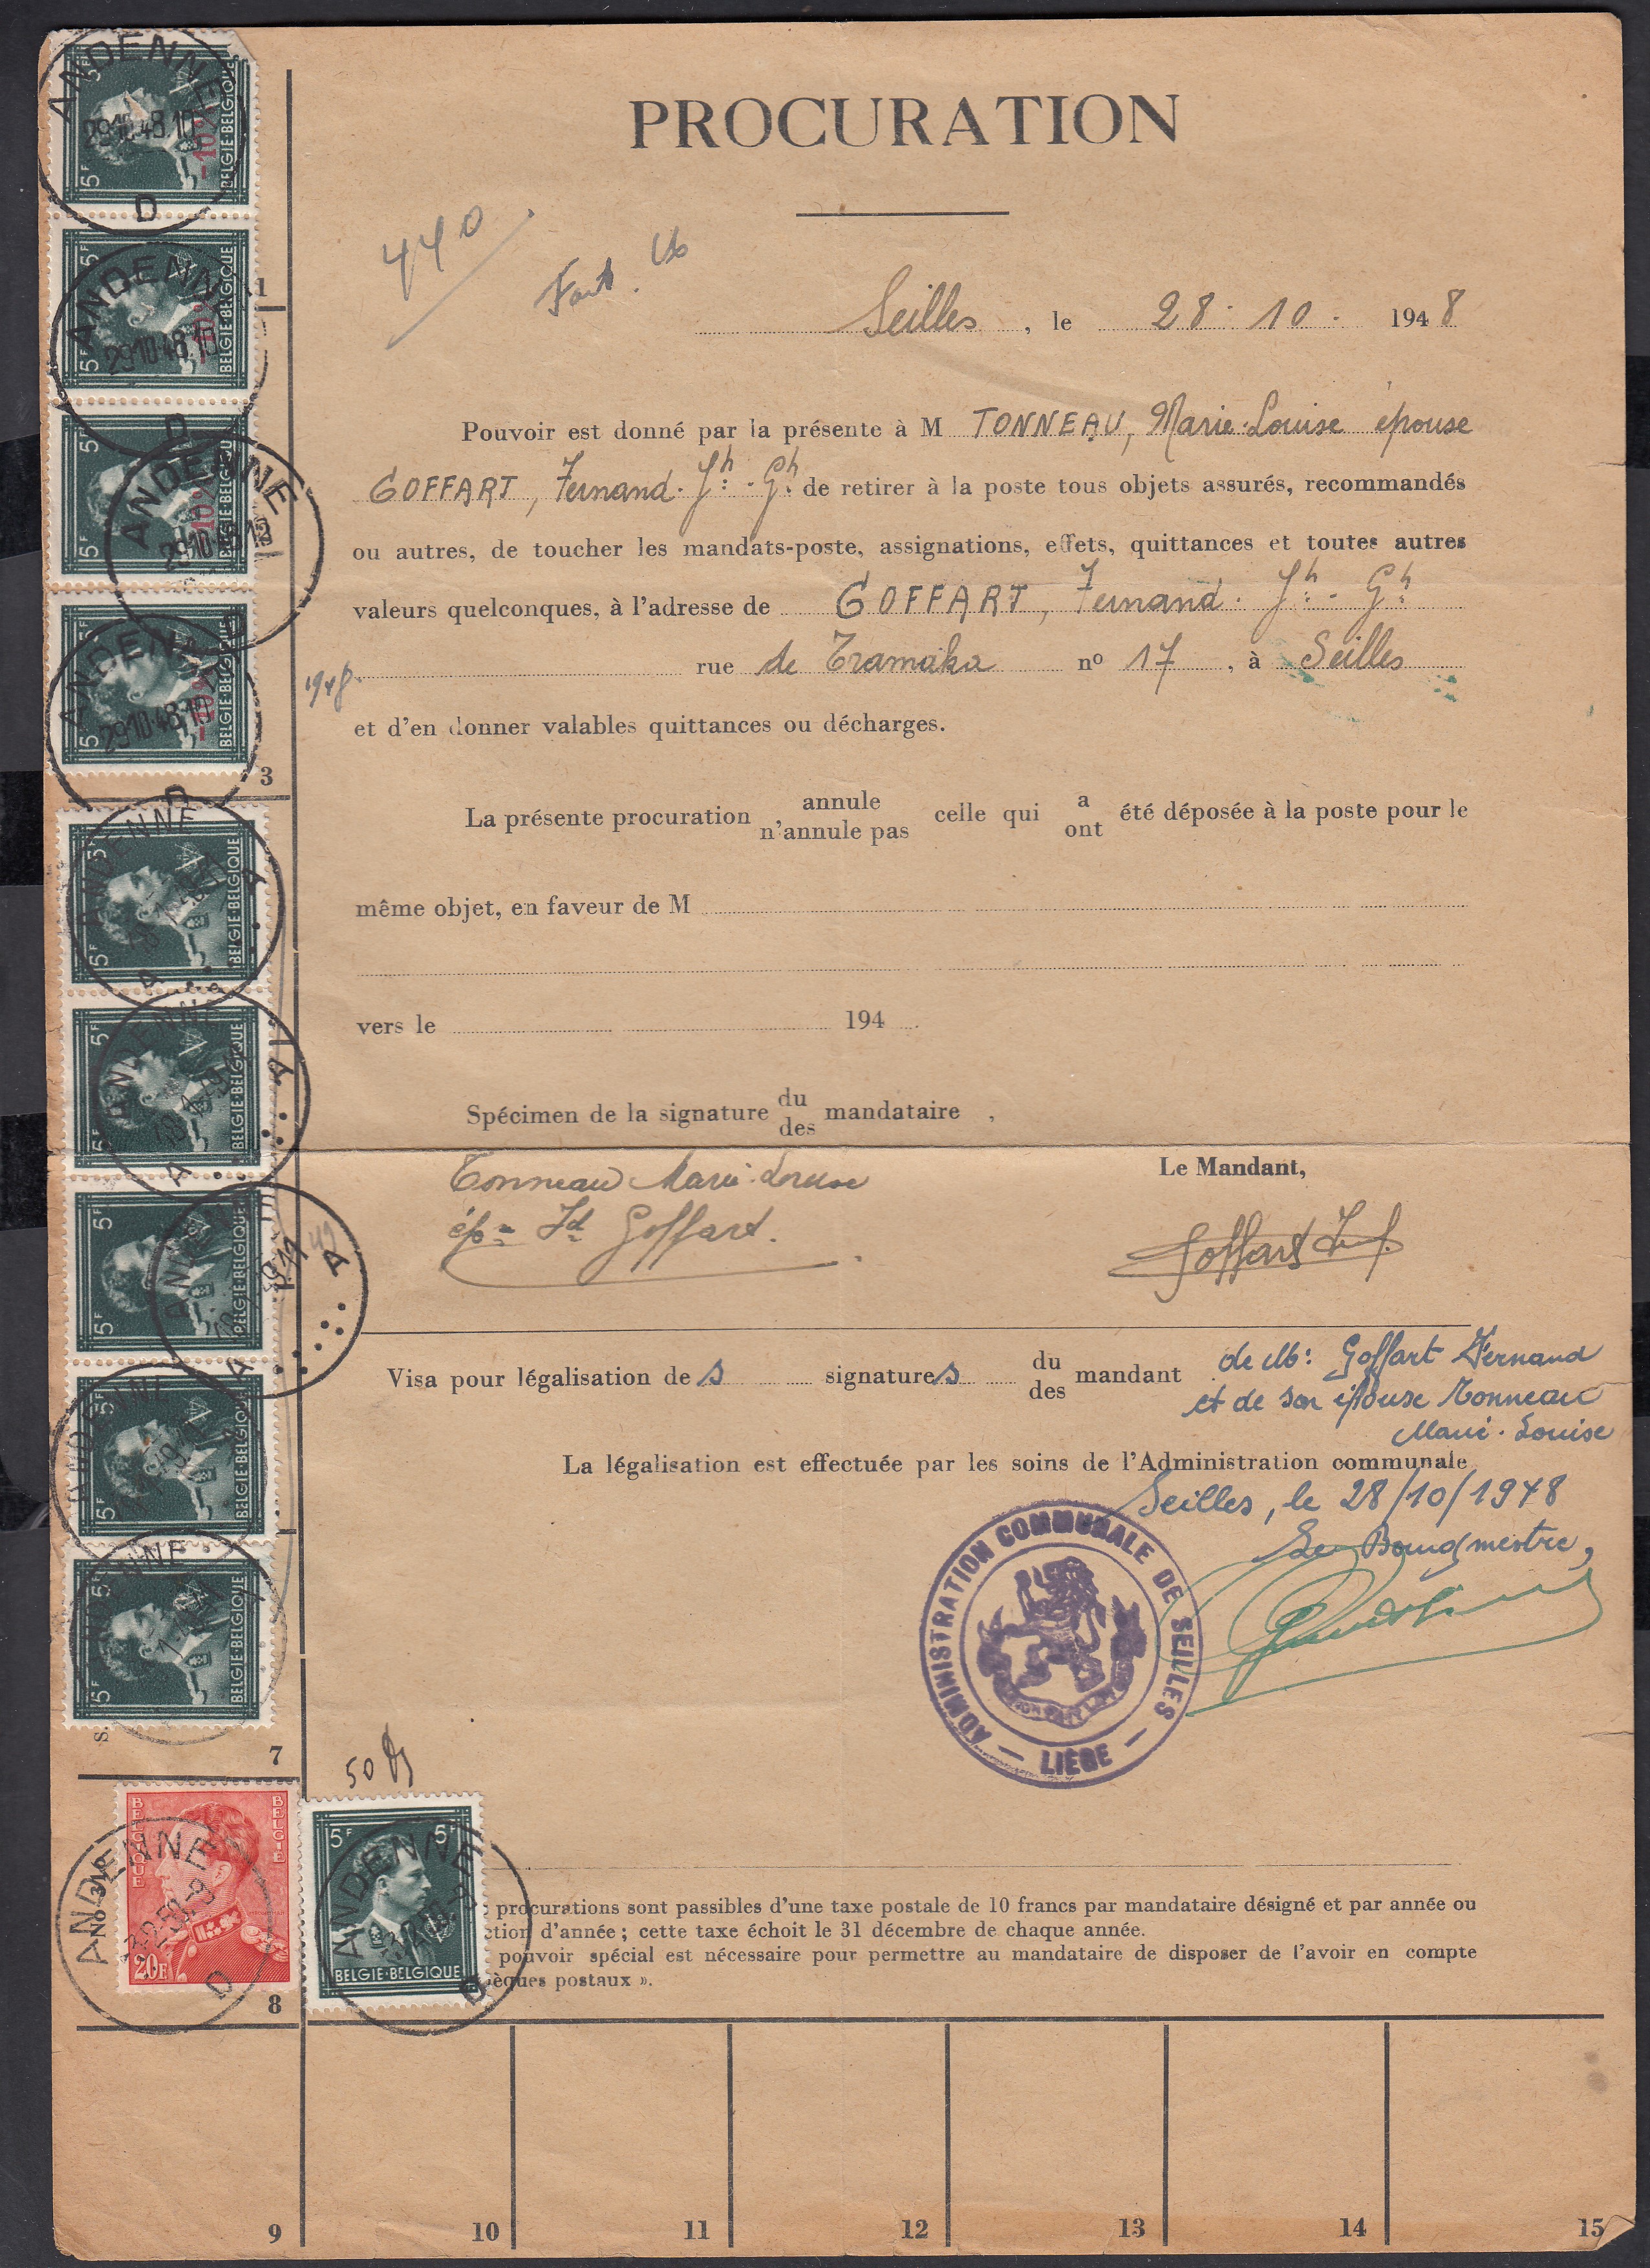 PROCURATION
440
Seilles, le 28-10-1948
Pouvoir est donné par la présente à M TONNEAU, Marie-Louise épouse
GOFFART, Fernand-Jh.-Gh. de retirer à la poste tous objets assurés, recommandés
ou autres, de toucher les mandats-poste, assignations, effets, quittances et toutes autres
valeurs quelconques, à l'adresse de GOFFART, Fernand-Jh.-Gh.
rue de Tramaka nº 17, à Seilles
1948
et d'en donner valables quittances ou décharges.
La présente procuration annule n'annule pas celle qui a ont été déposée à la poste pour le
même objet, en faveur de M
vers le 194
Spécimen de la signature du des mandataire
Tonneau Marie-Louise
ép= Fd Goffart.
Le Mandant,
Goffart
Visa pour légalisation des signatures du des mandant de Mr: Goffart Fernand
et de son épouse Tonneau
Marie-Louise
La légalisation est effectuée par les soins de l'Administration communale
Seilles, le 28/10/1948
Le Bourgmestre,
ADMINISTRATION COMMUNALE DE SEILLES
— LIÈGE —
procurations sont passibles d'une taxe postale de 10 francs par mandataire désigné et par année ou
ction d'année ; cette taxe échoit le 31 décembre de chaque année.
pouvoir spécial est nécessaire pour permettre au mandataire de disposer de l'avoir en compte
èques postaux ».
5F 5F BELGIE-BELGIQUE -10%
ANDENNE 29-10-48 10 D
1
5F 5F BELGIE-BELGIQUE -10%
ANDENNE 29-10-48 D
5F 5F BELGIE-BELGIQUE -10%
ANDENNE 29-10-48
5F 5F BELGIE-BELGIQUE -10%
ANDENNE 29-10-48 10 D
3
5F 5F BELGIE-BELGIQUE
ANDENNE A A
5F 5F BELGIE-BELGIQUE
A A
5F 5F BELGIE-BELGIQUE
A A
5F 5F BELGIE-BELGIQUE
5F 5F BELGIE-BELGIQUE
7
50
BELGIQUE BELGIE 20F
No 3
ANDENNE D
8
5F 5F BELGIE-BELGIQUE
ANDENNE D
9
10
11
12
13
14
15